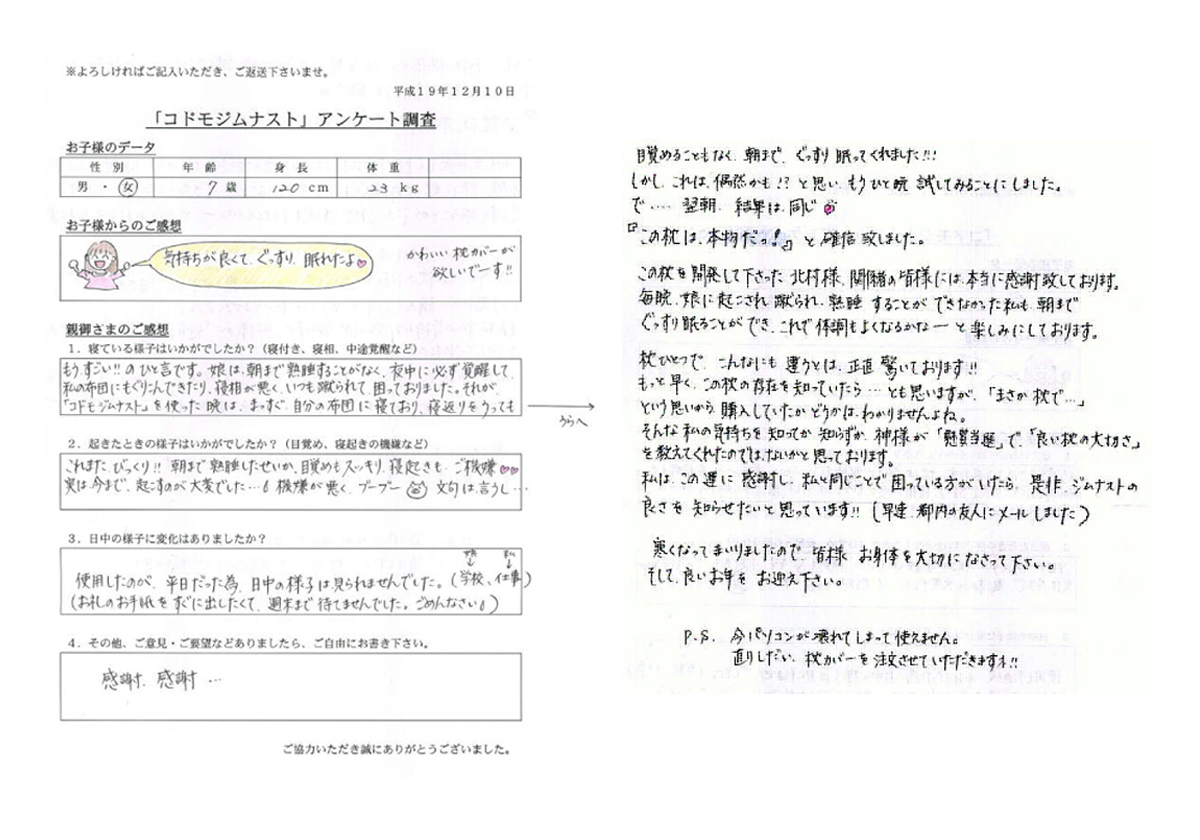 ※よろしければご記入いただき、ご返送下さいませ。
平成19年12月10日
「コドモジムナスト」アンケート調査
お子様のデータ
性 別 年 齢 身 長 体 重
男 ・ 女 7 歳 120 cm 23 kg
お子様からのご感想
気持ちが良くて、ぐっすり、眠れたよ
かわいい枕カバーが
欲しいでーす!!
親御さまのご感想
1.寝ている様子はいかがでしたか？（寝付き、寝相、中途覚醒など）
もうすごい!!のひと言です。娘は、朝まで熟睡することがなく、夜中に必ず覚醒して、
私の布団にもぐりこんできたり、寝相が悪く、いつも蹴られて、困っておりました。それが、
「コドモジムナスト」を使った晩は、まっすぐ、自分の布団に寝ており、寝返りをうっても
うらへ
2.起きたときの様子はいかがでしたか？（目覚め、寝起きの機嫌など）
これまた、びっくり!! 朝まで熟睡したせいか、目覚めもスッキリ、寝起きも、ご機嫌
実は今まで、起こすのが大変でした… 機嫌が悪く、ブーブー 文句は言うし…
3.日中の様子に変化はありましたか？
娘 私
使用したのが、平日だった為、日中の様子は見られませんでした。(学校、仕事)
(お礼のお手紙をすぐに出したくて、週末まで待てませんでした。ごめんなさい)
4.その他、ご意見・ご要望などありましたら、ご自由にお書き下さい。
感謝、感謝…
ご協力いただき誠にありがとうございました。
目覚めることもなく、朝まで、ぐっすり眠ってくれました!!!
しかし、これは、偶然かも!?と思い、もうひと晩 試してみることにしました。
で…… 翌朝、結果は、同じ
『この枕は、本物だっ!』と確信致しました。
この枕を開発して下さった北村様、関係者の皆様には、本当に感謝致しております。
毎晩、娘に起こされ、蹴られ、熟睡することができなかった私も、朝まで
ぐっすり眠ることができ、これで体調もよくなるかなーと楽しみにしております。
枕ひとつで、こんなにも違うとは、正直驚いております!!
もっと早く、この枕の存在を知っていたら…とも思いますが、「まさか枕で…」
という思いから、購入していたかどうかは、わかりませんよね。
そんな私の気持ちを知ってか知らずか、神様が「懸賞当選」で、「良い枕の大切さ」
を教えてくれたのではないかと思っております。
私は、この運に感謝し、私と同じことで困っている方がいたら、是非、ジムナストの
良さを知らせたいと思っています!!(早速、都内の友人にメールしました)
寒くなってまいりましたので、皆様、お身体を大切になさって下さい。
そして、良いお年をお迎え下さい。
P.S. 今パソコンが壊れてしまって使えません。
直りしだい、枕カバーを注文させていただきますネ!!